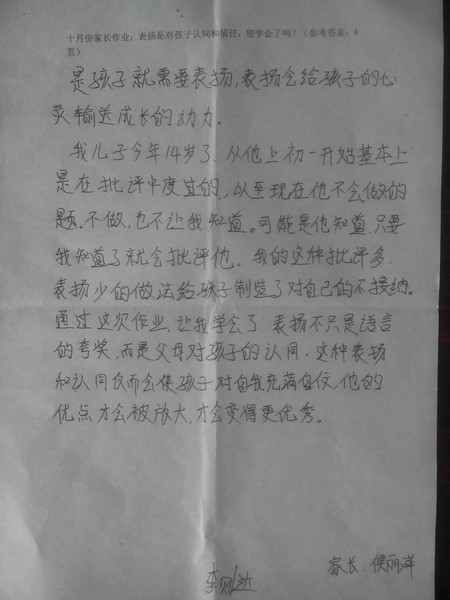 十月份家长作业:表扬是对孩子认同和信任,您学会了吗?(参考答案:4
页)
是孩子就需要表扬,表扬会给孩子的心
灵输送成长的动力。
我儿子今年14岁了,从他上初一开始基本上
是在批评中度过的,以至现在他不会做的
题,不做,也不让我知道。可能是他知道,只要
我知道了就会批评他。我的这种批评多,
表扬少的做法给孩子制造了对自己的不接纳。
通过这次作业,让我学会了表扬不只是语言
的夸奖,而是父母对孩子的认同,这种表扬
和认同反而会使孩子对自我充满自信,他的
优点才会被放大,才会变得更优秀。
家长:侯丽萍
李